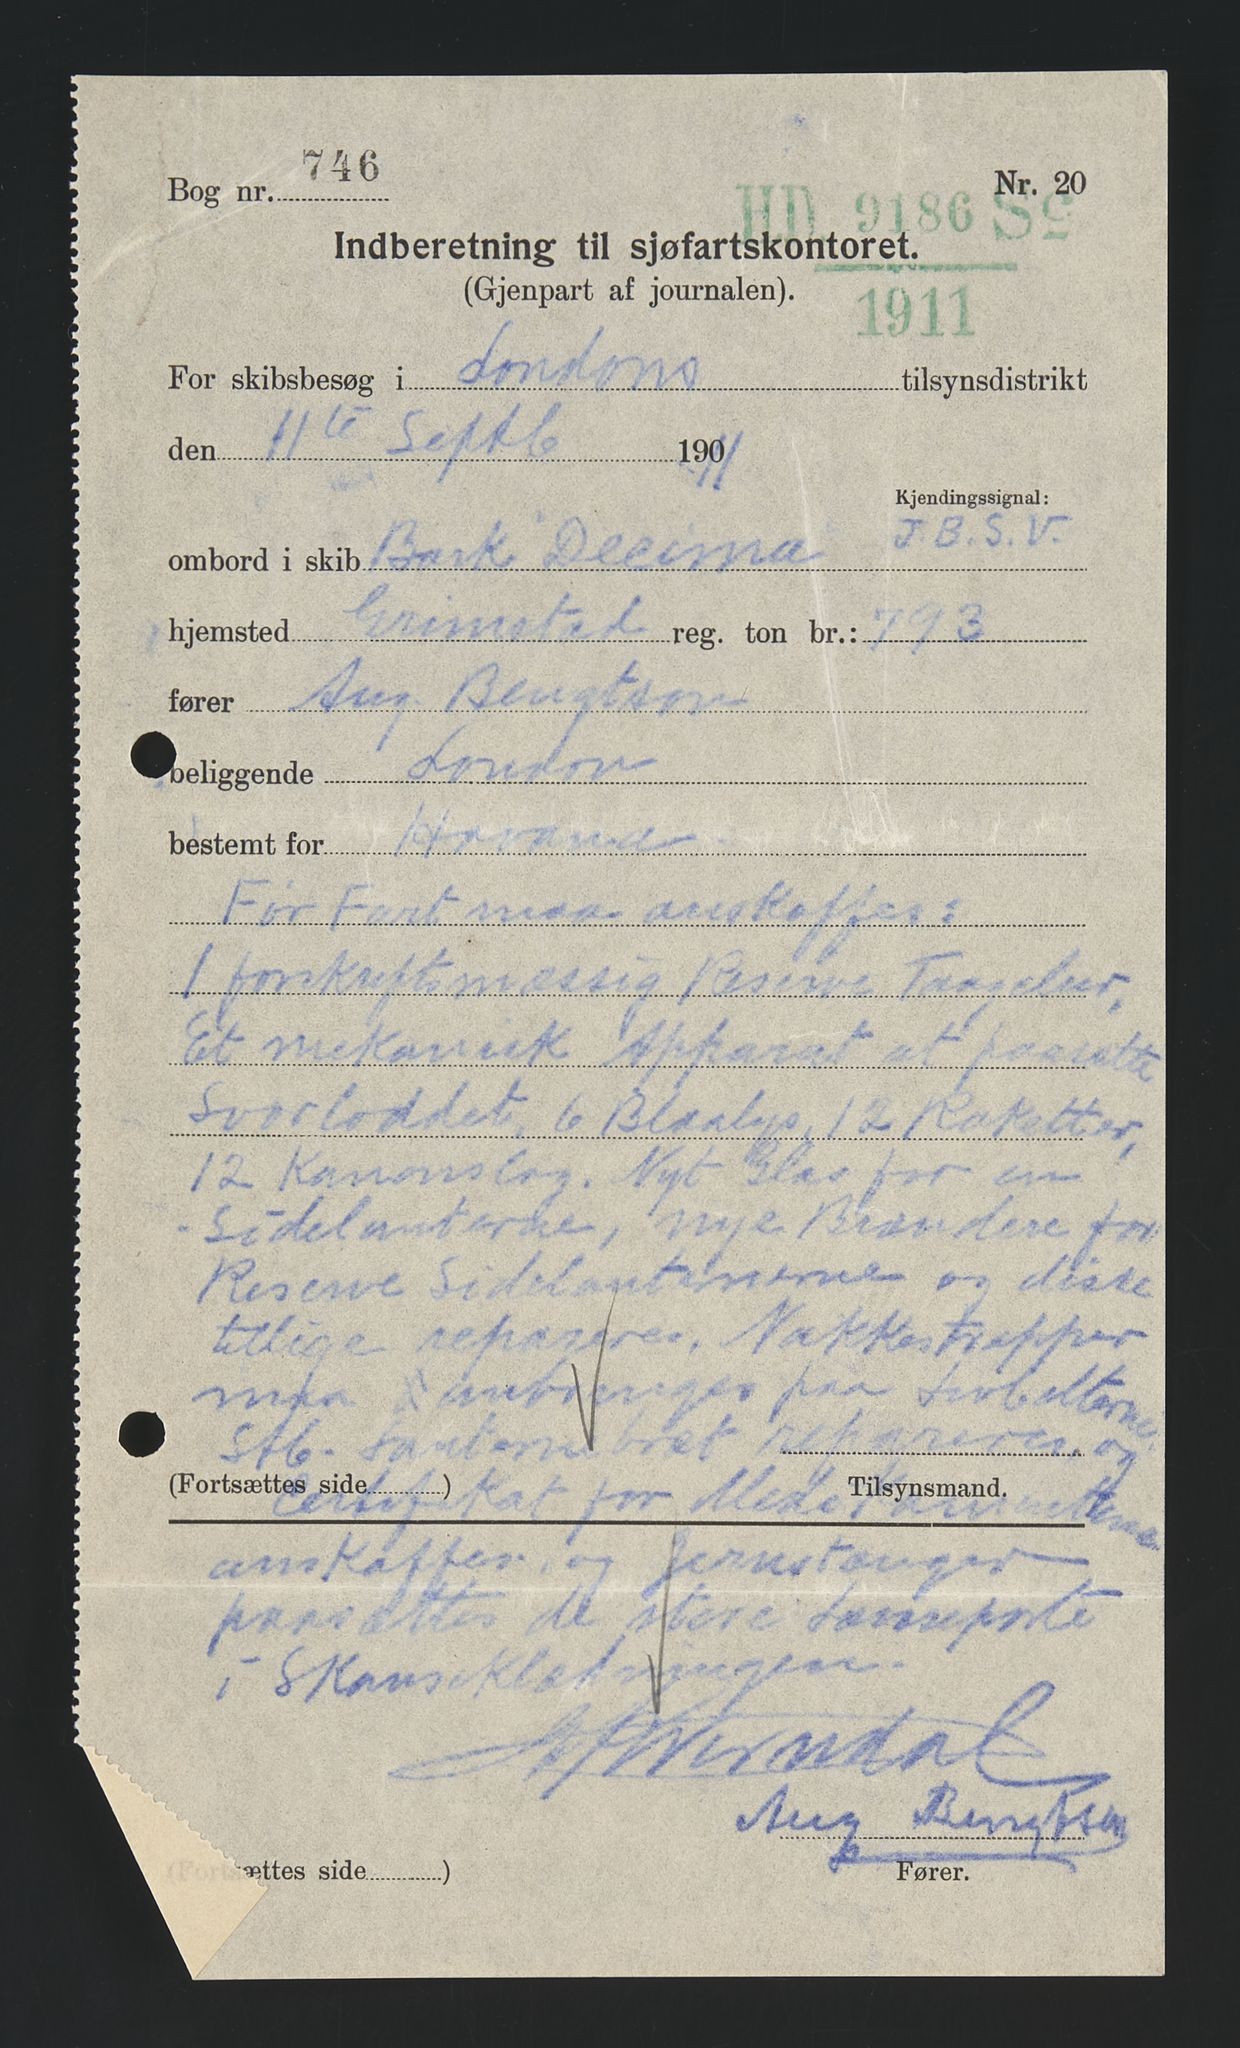 Bog nr. 746
Nr. 20
HD. 9186 Sc
1911
Indberetning til sjøfartskontoret.
(Gjenpart af journalen).
For skibsbesøg i Londons tilsynsdistrikt
den 11te Septb 190 11
Kjendingssignal:
J.B.S.V.
ombord i skib Bark "Decima"
hjemsted Grimstad reg. ton br.: 793
fører Aug. Bengtson
beliggende London
bestemt for Havana
Før Fart maa anskaffes:
1 forskriftsmæssig Reserve Taagelur,
Et mekanisk Apparat at paasætte
Svorloddet, 6 Blaalys, 12 Raketter,
12 Kanonslag. Nyt Glas for en
Sidelanterne, nye Brændere for
Reserve Sidelanternerne og disse
tillige repareres. Nakkestropper
maa anbringes paa Livbelterne.
Stb. Lanternebræt repareres, og
(Fortsættes side )
Tilsynsmand.
Certifikat for
anskaffes, og Jernstænger
paasættes de store Lænseporte
i Skanseklædningen.
Aug Bengtson
(Fortsættes side )
Fører.